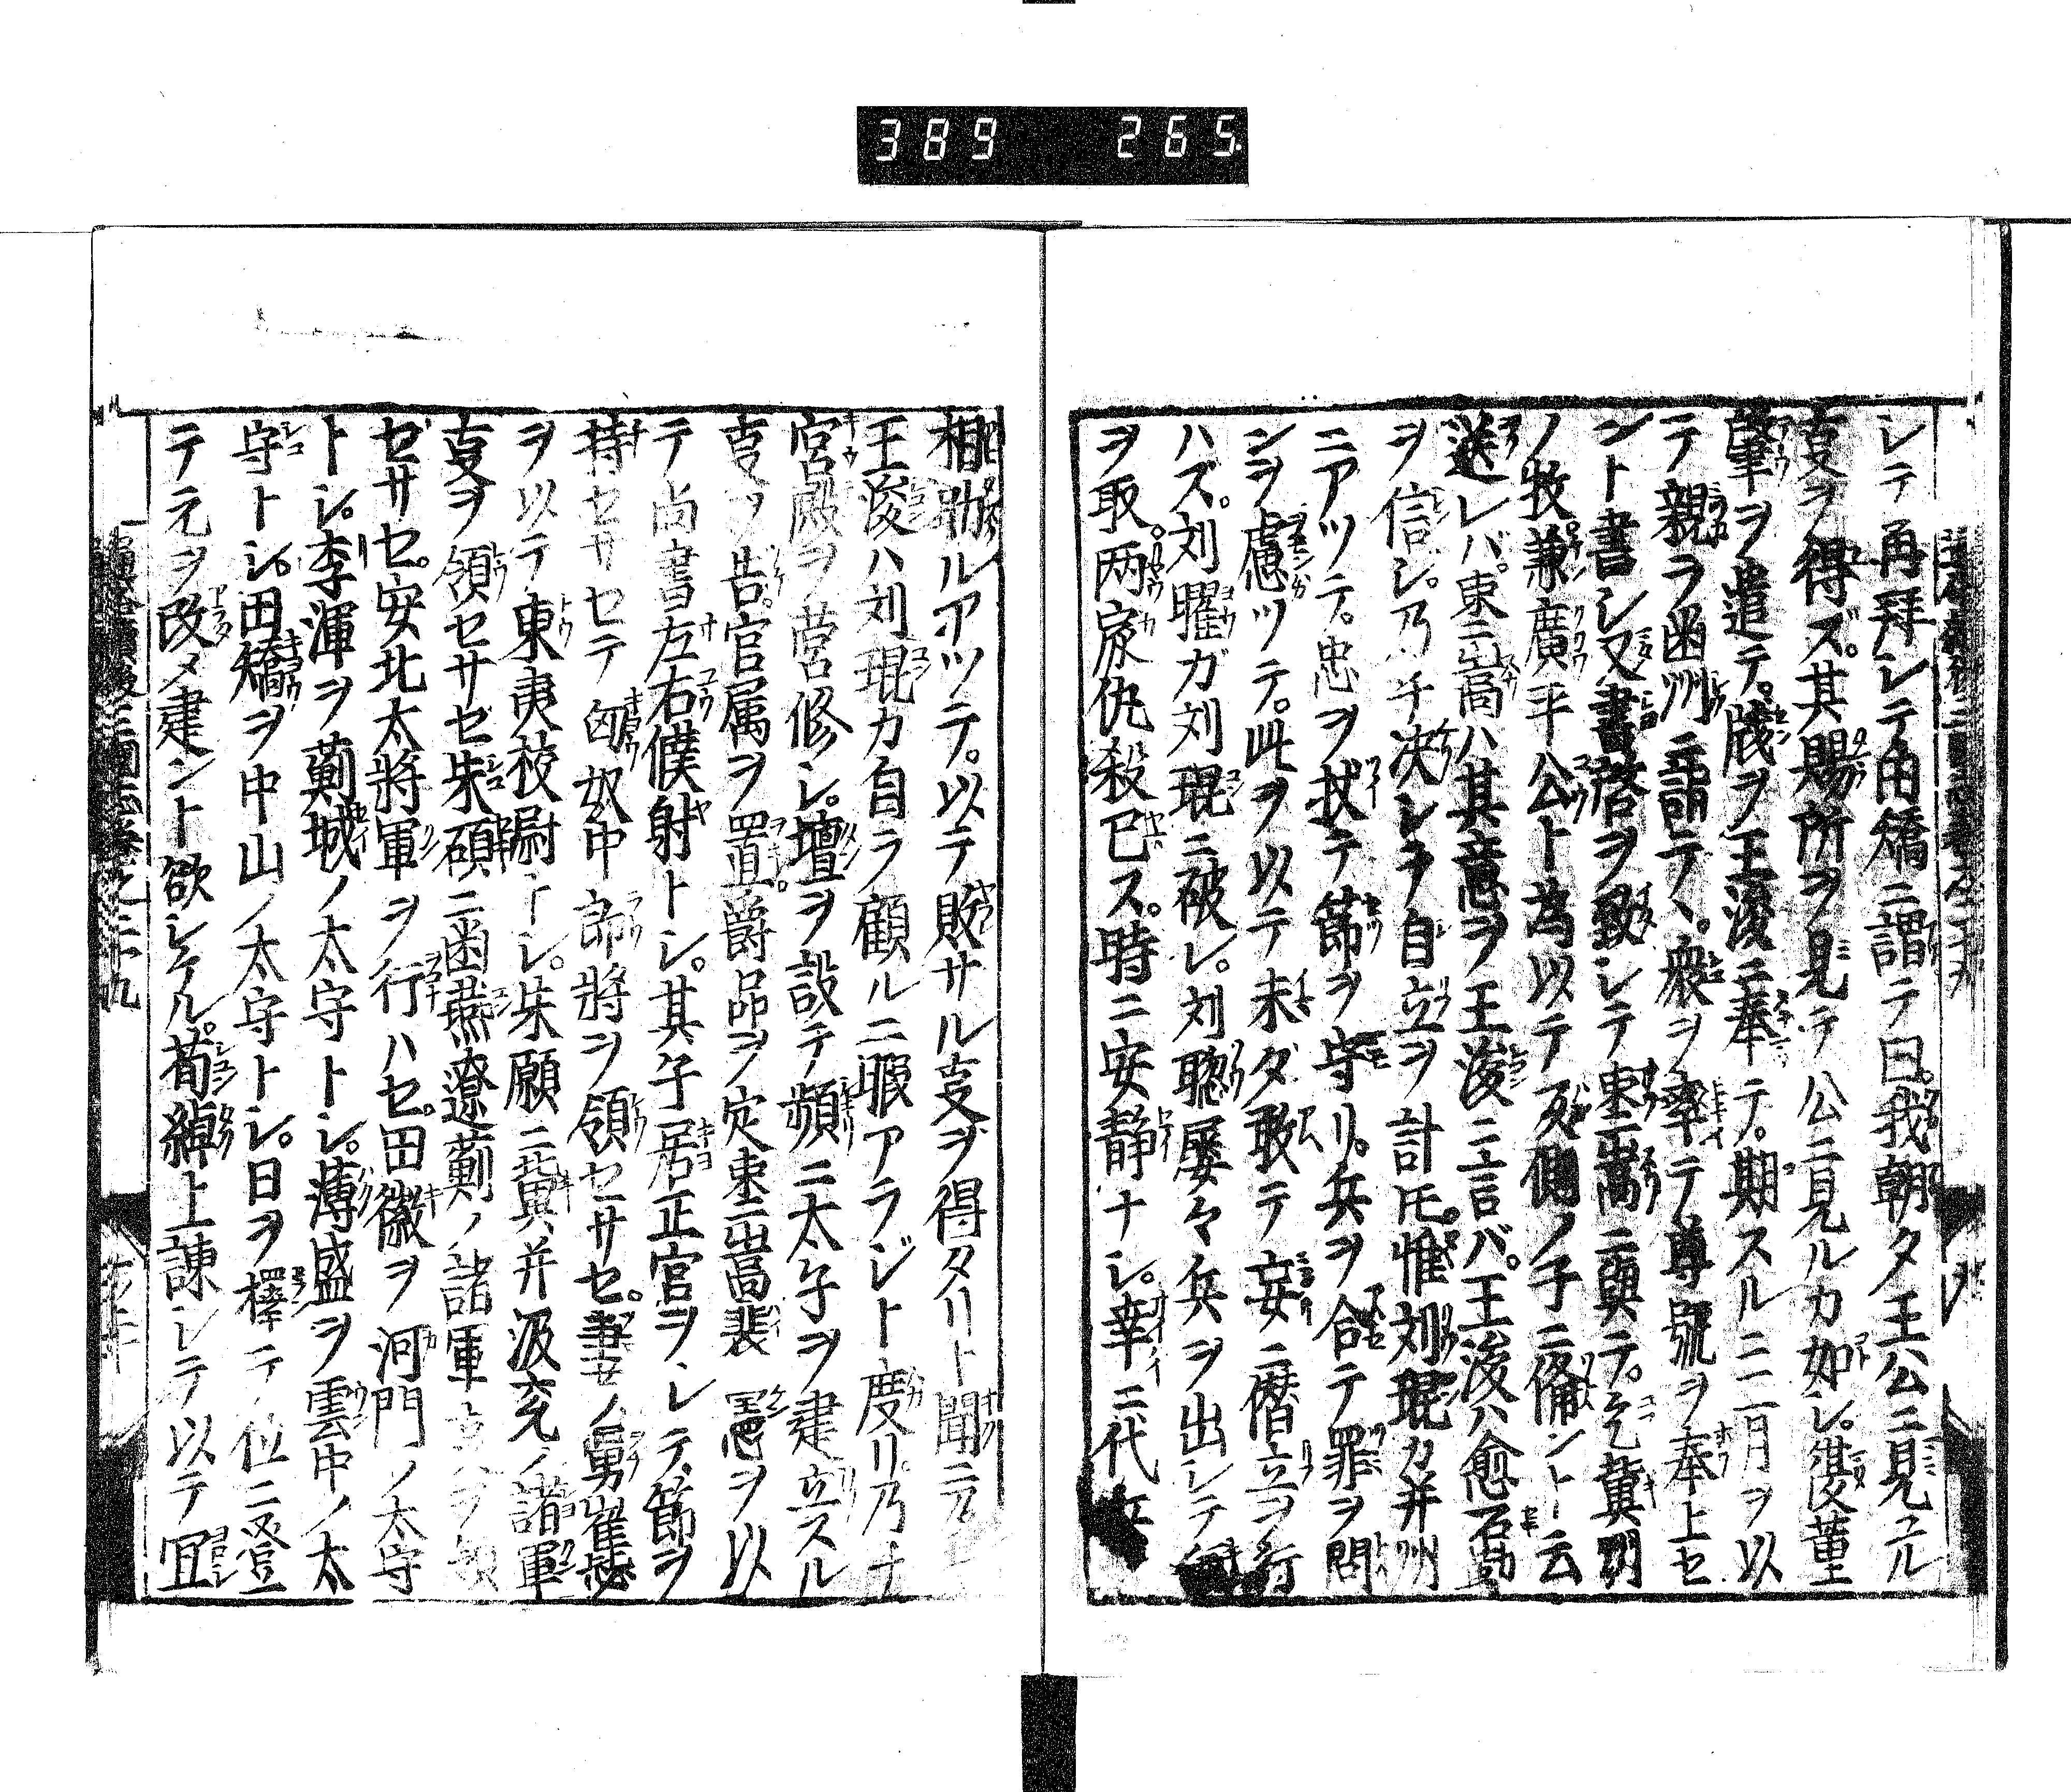 389 265
レテ再拜レテ田矯ニ謂テ曰。我朝夕王公ニ見ユル
叓ヲ得ズ。其賜所ヲ見テ公ニ見ルカ如シ。復董
肇ヲ遣テ。牋ヲ王浚ニ奉テ。期スルニ二月ヲ以
テ親ラ幽州ニ詣テヽ。衆ヲ率テ尊號ヲ奉上セ
ント書シ又書啓ヲ致シテ棗嵩ニ與テ。乞冀州
ノ牧兼廣平公ト為以テ反側ノ子ニ備ント云
送レバ。棗嵩ハ其意ヲ王浚ニ言バ。王浚ハ愈石勒
ヲ信シ。乃チ决シテ自立ヲ計圧。惟刘琨カ并州
ニアツテ。忠ヲ扶テ節ヲ守リ。兵ヲ合テ罪ヲ問
ンヲ慮ツテ。此ヲ以テ未ダ敢テ妄ニ僣立ヲ行
ハズ。刘曜ガ刘琨ニ破レ。刘聰屡々兵ヲ出シテ
ヲ取。两家仇殺巳ス。時ニ安静ナシ。幸ニ代
相助ルアツテ。以テ敗サル叓ヲ得タリト聞ニ
王浚ハ刘琨カ自ラ顧ルニ暇アラジト度リ。乃ナ
宮殿ヲ営修シ。壇ヲ設テ頻ニ太子ヲ建立スル
叓ヲ告。官属ヲ置。爵品ヲ定棗嵩裴憲ヲ以
テ尚書左右僕射トシ。其子居正官ヲシテ。節ヲ
持セサセテ匈奴中郎將ヲ領セサセ。妻ノ舅崔毖
ヲ以テ東夷校尉トシ。朱願ニ冀并汲兖ノ諸軍
叓ヲ領セサセ朱碩ニ幽燕遼薊ノ諸軍叓ヲ領
セサセ。安北太將軍ヲ行ハセ。田徽ヲ河門ノ太守
トシ。李渾ヲ薊城ノ太守トシ。薄盛ヲ雲中ノ太
守トシ。田矯ヲ中山ノ太守トシ。日ヲ擇テ位ニ登
テ元ヲ改メ建ント欲シケル。荀綽上諌シテ以テ冝